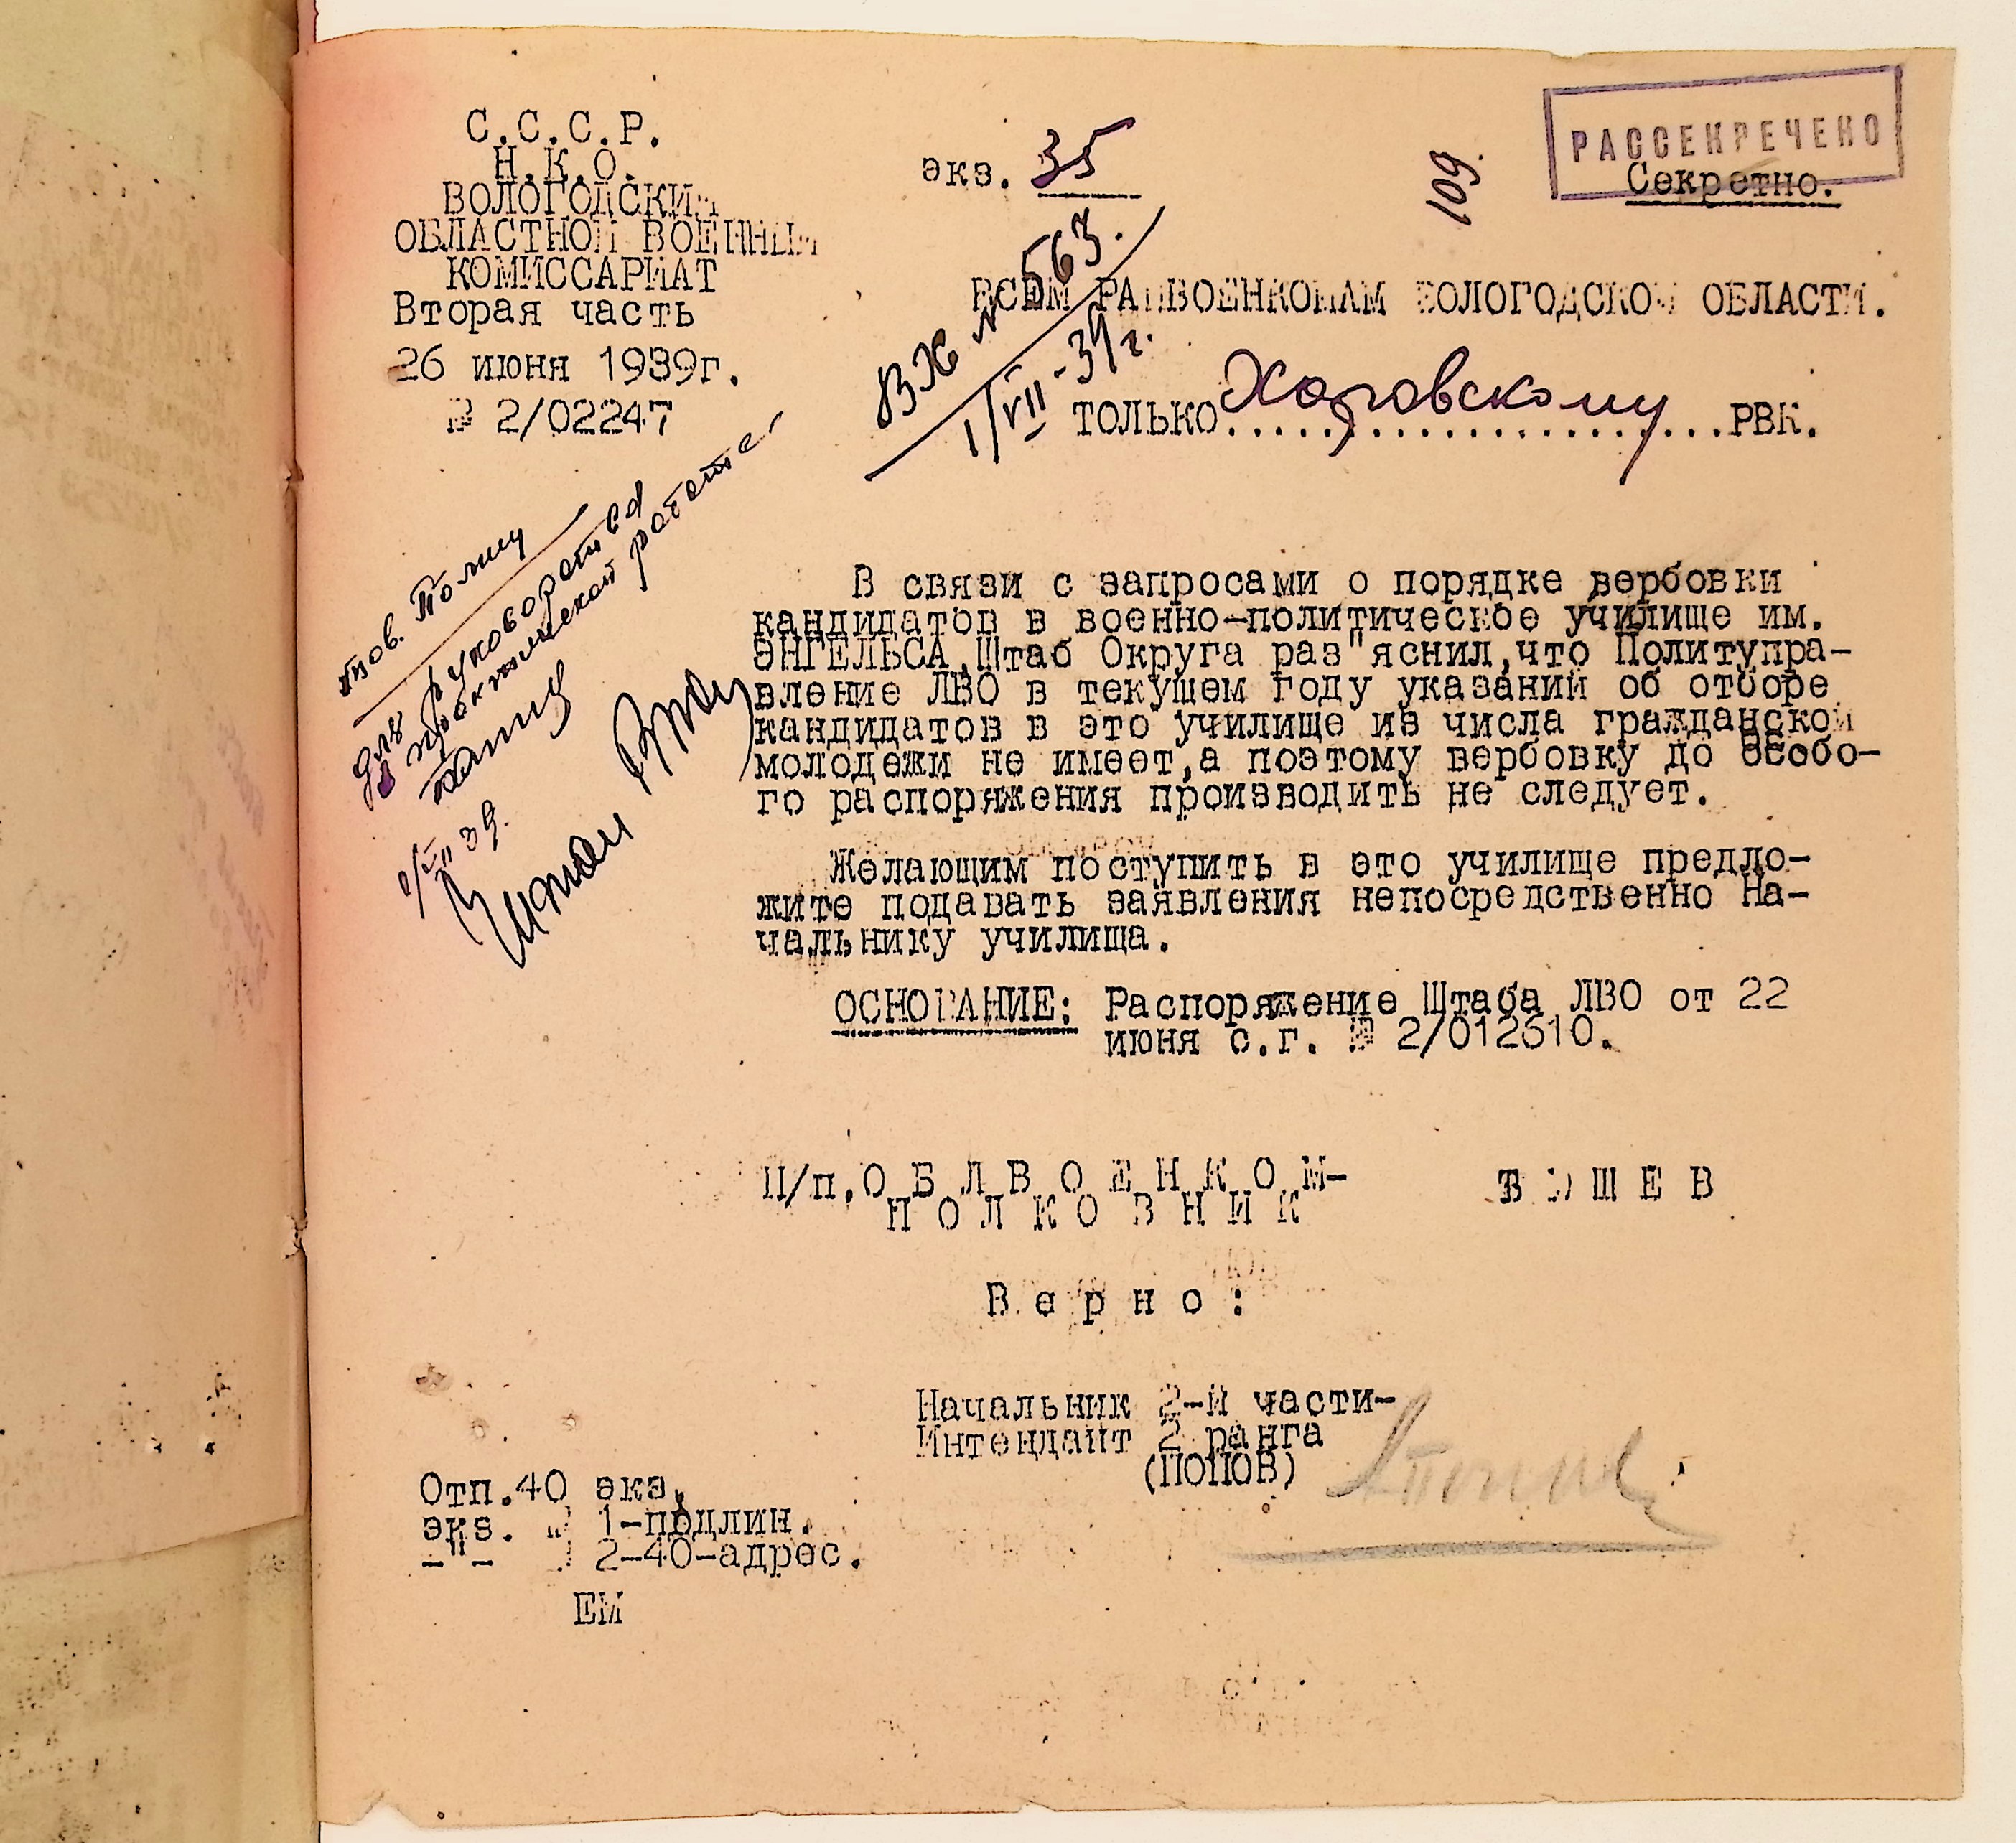 С.С.С.Р.
Н.К.О.
ВОЛОГОДСКИЙ
ОБЛАСТНОЙ ВОЕННЫЙ
КОМИССАРИАТ
Вторая часть
26 июня 1939г.
№ 2/02247
экз. 35
109.
РАССЕКРЕЧЕНО
Секретно.
Вх № 563.
1/VII-39г.
ВСЕМ РАЙВОЕНКОМАМ ВОЛОГОДСКОЙ ОБЛАСТИ.
ТОЛЬКО Харовскому РВК.
тов.
для руководства
в практической работе
1/VII 39.
Читал
В связи с запросами о порядке вербовки
кандидатов в военно-политическое училище им.
ЭНГЕЛЬСА,Штаб Округа раз"яснил,что Политупра-
вление ЛВО в текущем году указаний об отборе
кандидатов в это училище из числа гражданской
молодежи не имеет,а поэтому вербовку до особо-
го распоряжения производить не следует.
Желающим поступить в это училище предло-
жите подавать заявления непосредственно На-
чальнику училища.
ОСНОВАНИЕ: Распоряжение Штаба ЛВО от 22
июня с.г. № 2/012610.
П/п.ОБЛВОЕНКОМ-
ПОЛКОВНИК
Верно:
Начальник 2-й части-
Интендант 2 ранга
(ПОПОВ)
Отп.40 экз.
экз. № 1-подлин.
-"- № 2-40-адрес.
ЕМ